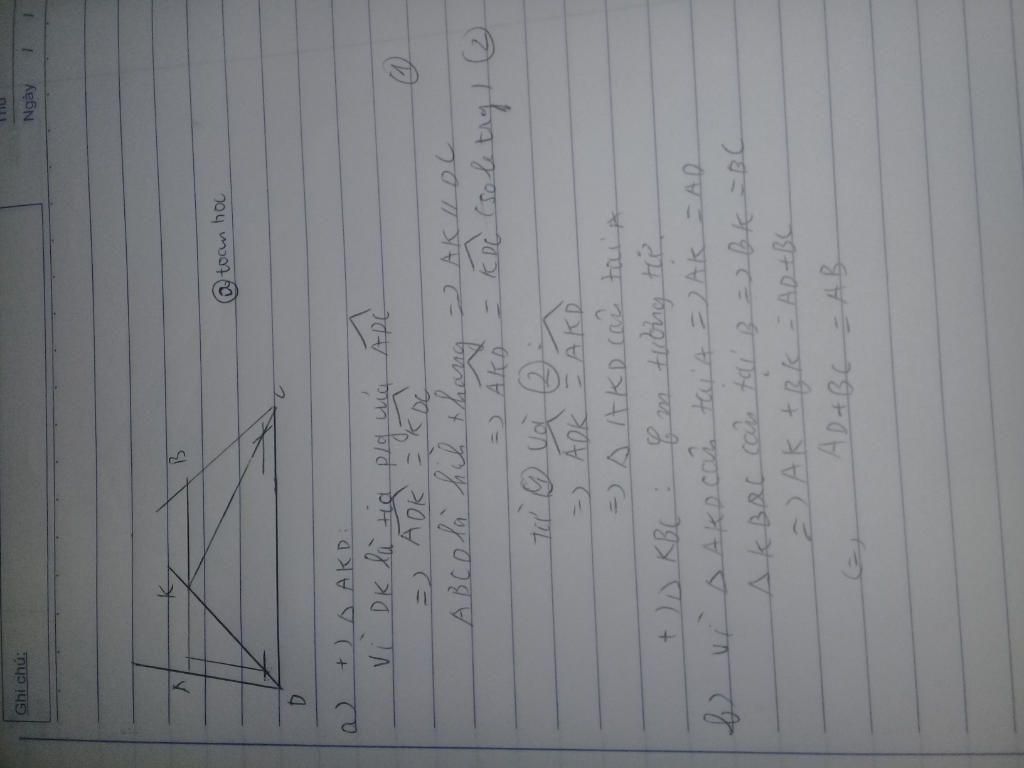 Ghi chú:
Thứ
Ngày / /
@toanhoc
A K B
D C
a) +) Δ AKD:
Vì DK là tia p/g của ADC
=> ADK = KDC (1)
ABCD là hình thang => AK // DC
=> AKD = KDC (so le trg) (2)
Từ (1) và (2):
=> ADK = AKD
=> Δ AKD cân tại A
+) Δ KBC: tương tự.
b) Vì Δ AKD cân tại A => AK = AD
Δ KBC cân tại B => BK = BC
=> AK + BK = AD + BC
(=) AD + BC = AB